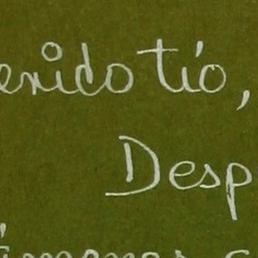 erido tío,
Desp